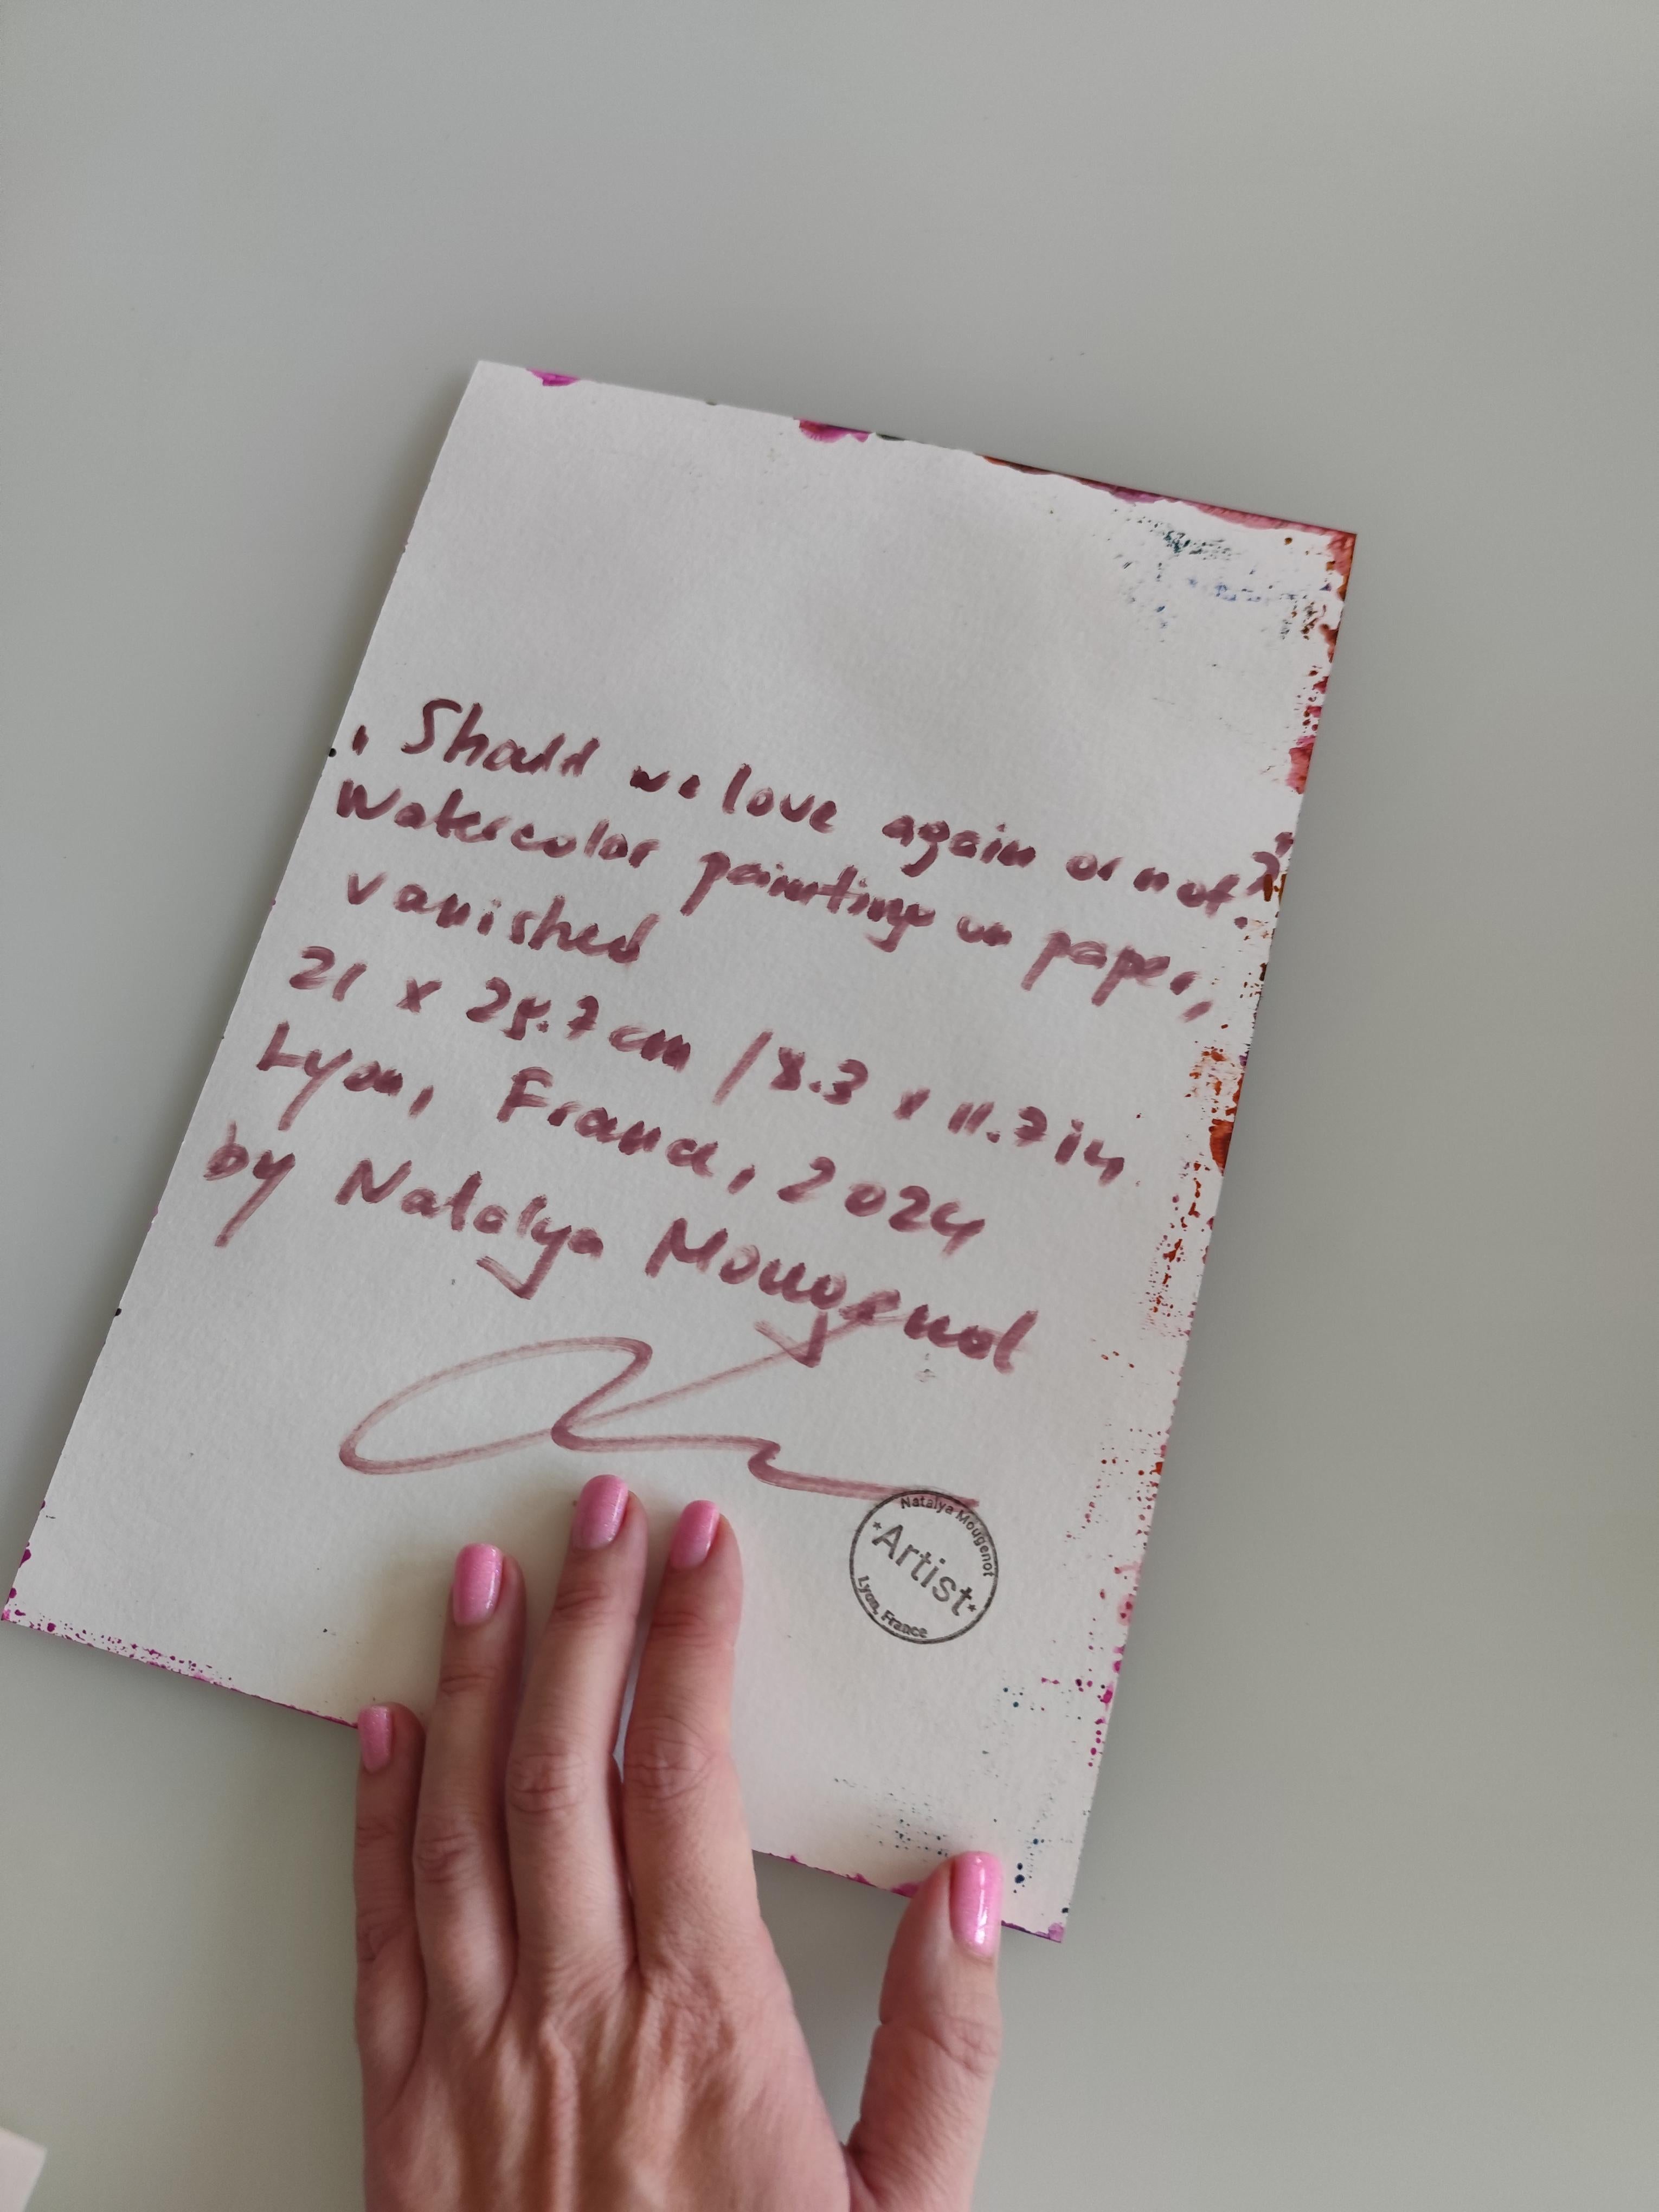 "Shall we love again or not?"
Watercolor painting on paper,
vanished
21 x 29.7 cm / 8.3 x 11.7 in
Lyon, France, 2024
by Natalya Mougenot
Natalya Mougenot
*Artist*
Lyon, France